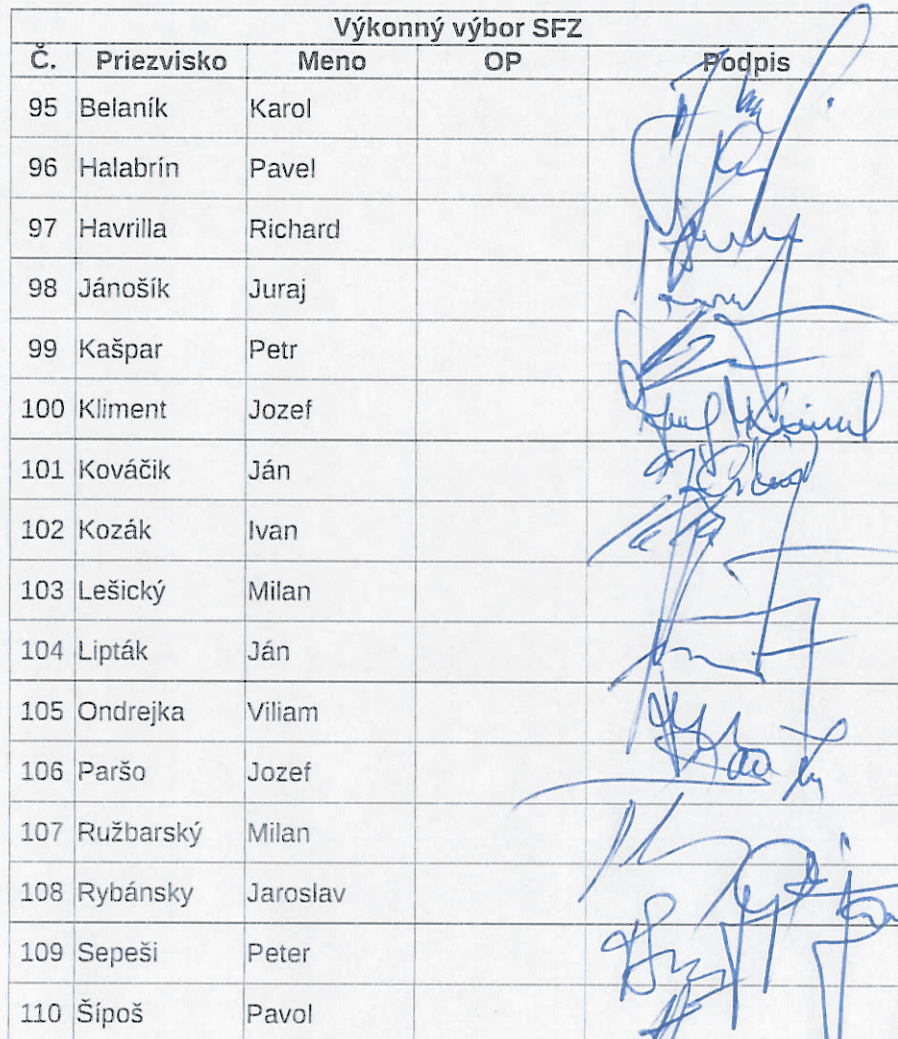 Výkonný výbor SFZ
Č. Priezvisko Meno OP Podpis
95 Belaník Karol
96 Halabrín Pavel
97 Havrilla Richard
98 Jánošík Juraj
99 Kašpar Petr
100 Kliment Jozef
101 Kováčik Ján
102 Kozák Ivan
103 Lešický Milan
104 Lipták Ján
105 Ondrejka Viliam
106 Paršo Jozef
107 Ružbarský Milan
108 Rybánsky Jaroslav
109 Sepeši Peter
110 Šípoš Pavol